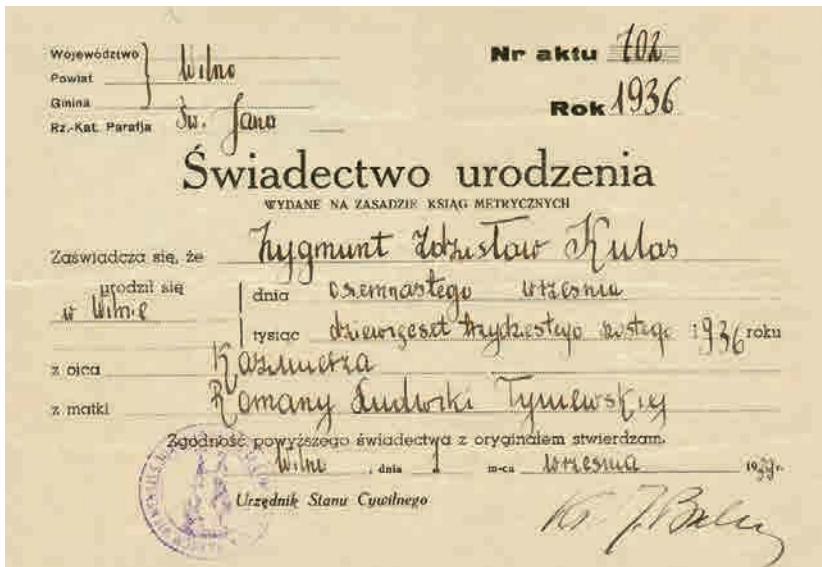 Województwo
Powiat Wilno
Gmina
Rz.-Kat. Parafja Św. Jana
Nr aktu 702
Rok 1936
Świadectwo urodzenia
WYDANE NA ZASADZIE KSIĄG METRYCZNYCH
Zaświadcza się, że Zygmunt Zdzisław Kulas
urodził się dnia osiemnastego września
w Wilnie
tysiąc dziewięćset trzydziestego szóstego 1936 roku
z ojca Kazimierza
z matki Romany Ludwiki Tymewskiej
Zgodność powyższego świadectwa z oryginałem stwierdzam.
Wilno, dnia 1 m-ca września 1939 r.
Urzędnik Stanu Cywilnego
Ks. J.